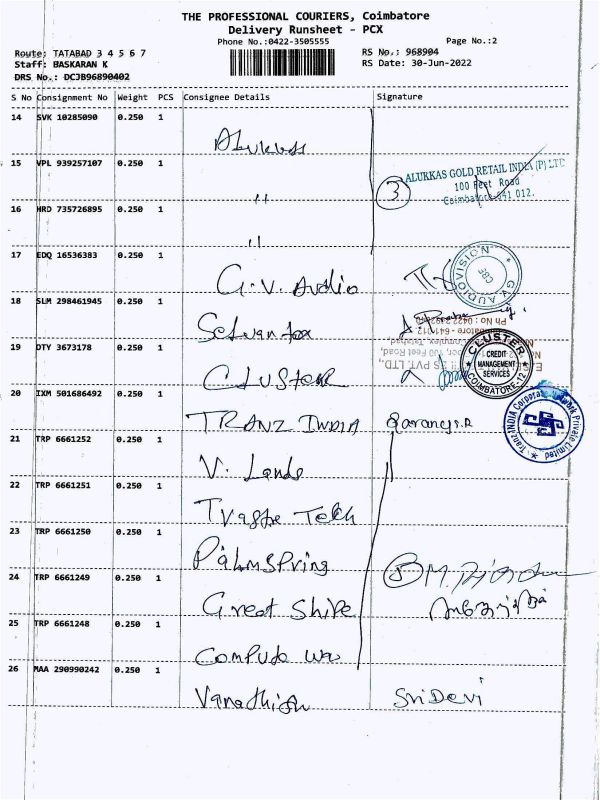 THE PROFESSIONAL COURIERS, Coimbatore
Delivery Runsheet - PCX
Phone No.:0422-3505555
Page No.:2
Route: TATABAD 3 4 5 6 7
RS No.: 968904
Staff: BASKARAN K
RS Date: 30-Jun-2022
DRS No.: DCJB96890402
S No Consignment No Weight PCS Consignee Details Signature
14 SVK 10285090 0.250 1
15 VPL 939257107 0.250 1 "
3 ALURKAS GOLD RETAIL INDIA (P) LTD
100 Feet Road
Coimbatore-641 012.
16 HRD 735726895 0.250 1 "
17 EDQ 16536383 0.250 1 G.V. Audio
GV AUDIOVISION CBE
18 SLM 298461945 0.250 1
19 DTY 3673178 0.250 1 CLUSTER
CLUSTER
CREDIT
MANAGEMENT
SERVICES
COIMBATORE-12
20 IXM 501686492 0.250 1 TRANZ INDIA Saranya.R
TranzINDIA Corporate Private Limited
21 TRP 6661252 0.250 1 V. Lands
22 TRP 6661251 0.250 1 Tech
23 TRP 6661250 0.250 1 Palmspring
24 TRP 6661249 0.250 1 Great Shine
25 TRP 6661248 0.250 1
26 MAA 290990242 0.250 1 SriDevi